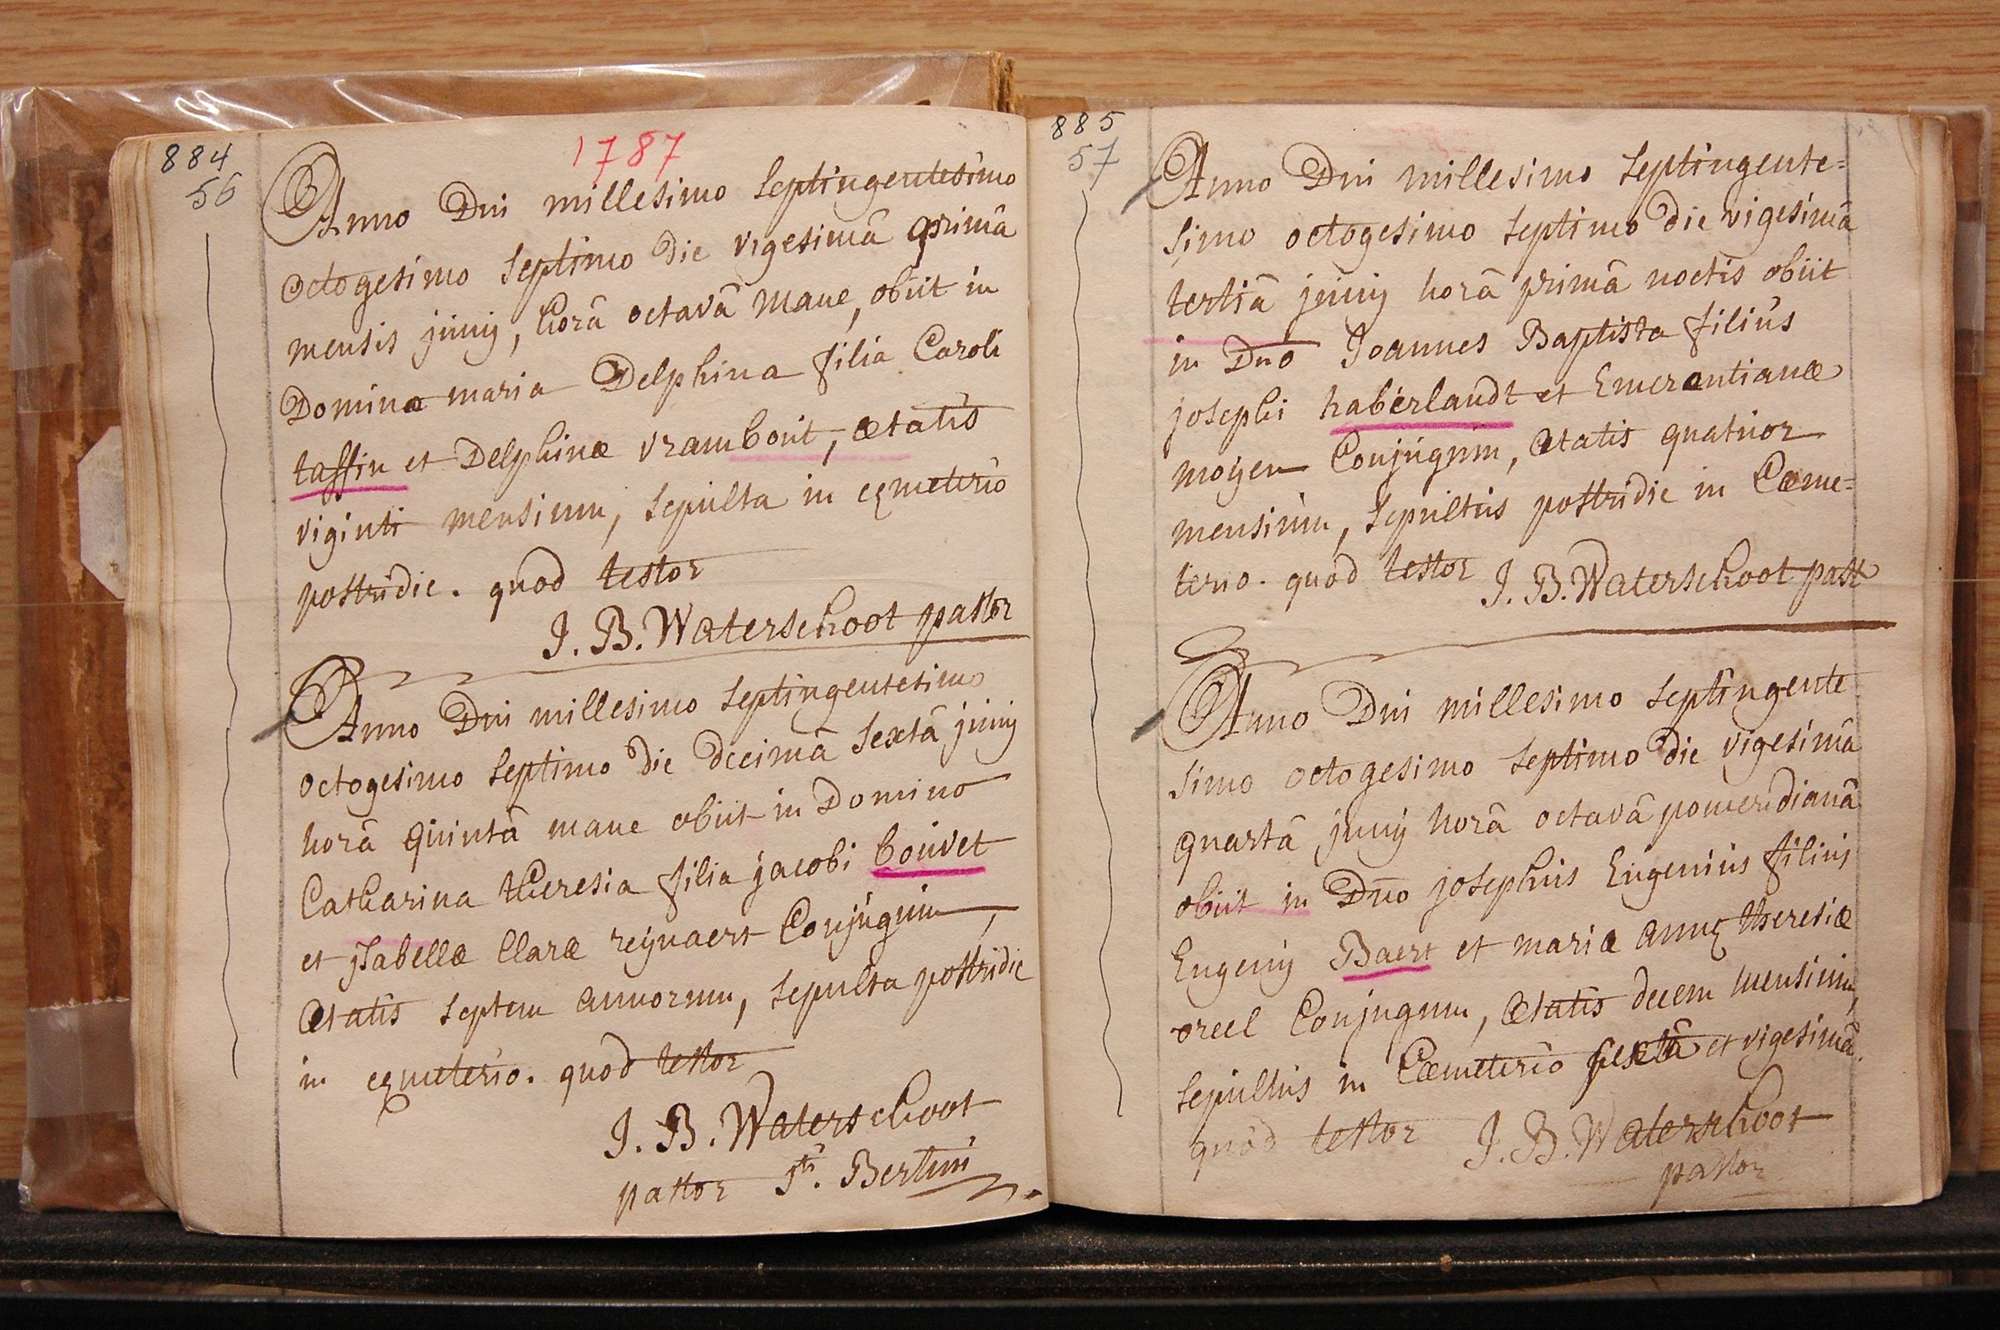 884
56
1787
Anno Dni millesimo septingentesimo
octogesimo septimo die vigesimâ primâ
mensis junij, horâ octavâ mane, obiit in
Domino maria Delphina filia Caroli
taffin et Delphinæ vrambout, ætatis
viginti mensium, sepulta in cœmeterio
postridie. quod testor
J. B. Waterschoot pastor
Anno Dni millesimo septingentesimo
octogesimo septimo die decimâ sextâ junij
horâ quintâ mane obiit in Domino
Catharina theresia filia jacobi bouvet
et jsabellæ Claræ reijnaert Conjugum,
ætatis septem annorum, sepulta postridie
in cœmeterio. quod testor
J. B. Waterschoot
pastor Sti. Bertini
885
57
Anno Dni millesimo septingente=
simo octogesimo septimo die vigesimâ
tertiâ junij horâ primâ noctis obiit
in Dno Joannes Baptista filius
josephi haberlandt et Emerantianæ
moijen Conjugum, ætatis quatuor
mensium, sepultus postridie in Cœme=
terio. quod testor J. B. Waterschoot past
Anno Dni millesimo septingente
simo octogesimo septimo die vigesimâ
quartâ junij horâ octavâ pomeridianâ
obiit in Dno josephus Eugenius filius
Eugenij Baert et mariæ annæ theresiæ
oreel Conjugum, ætatis decem mensium,
sepultus in Cœmeterio sextâ et vigesimâ.
quod testor J. B. Waterschoot
pastor